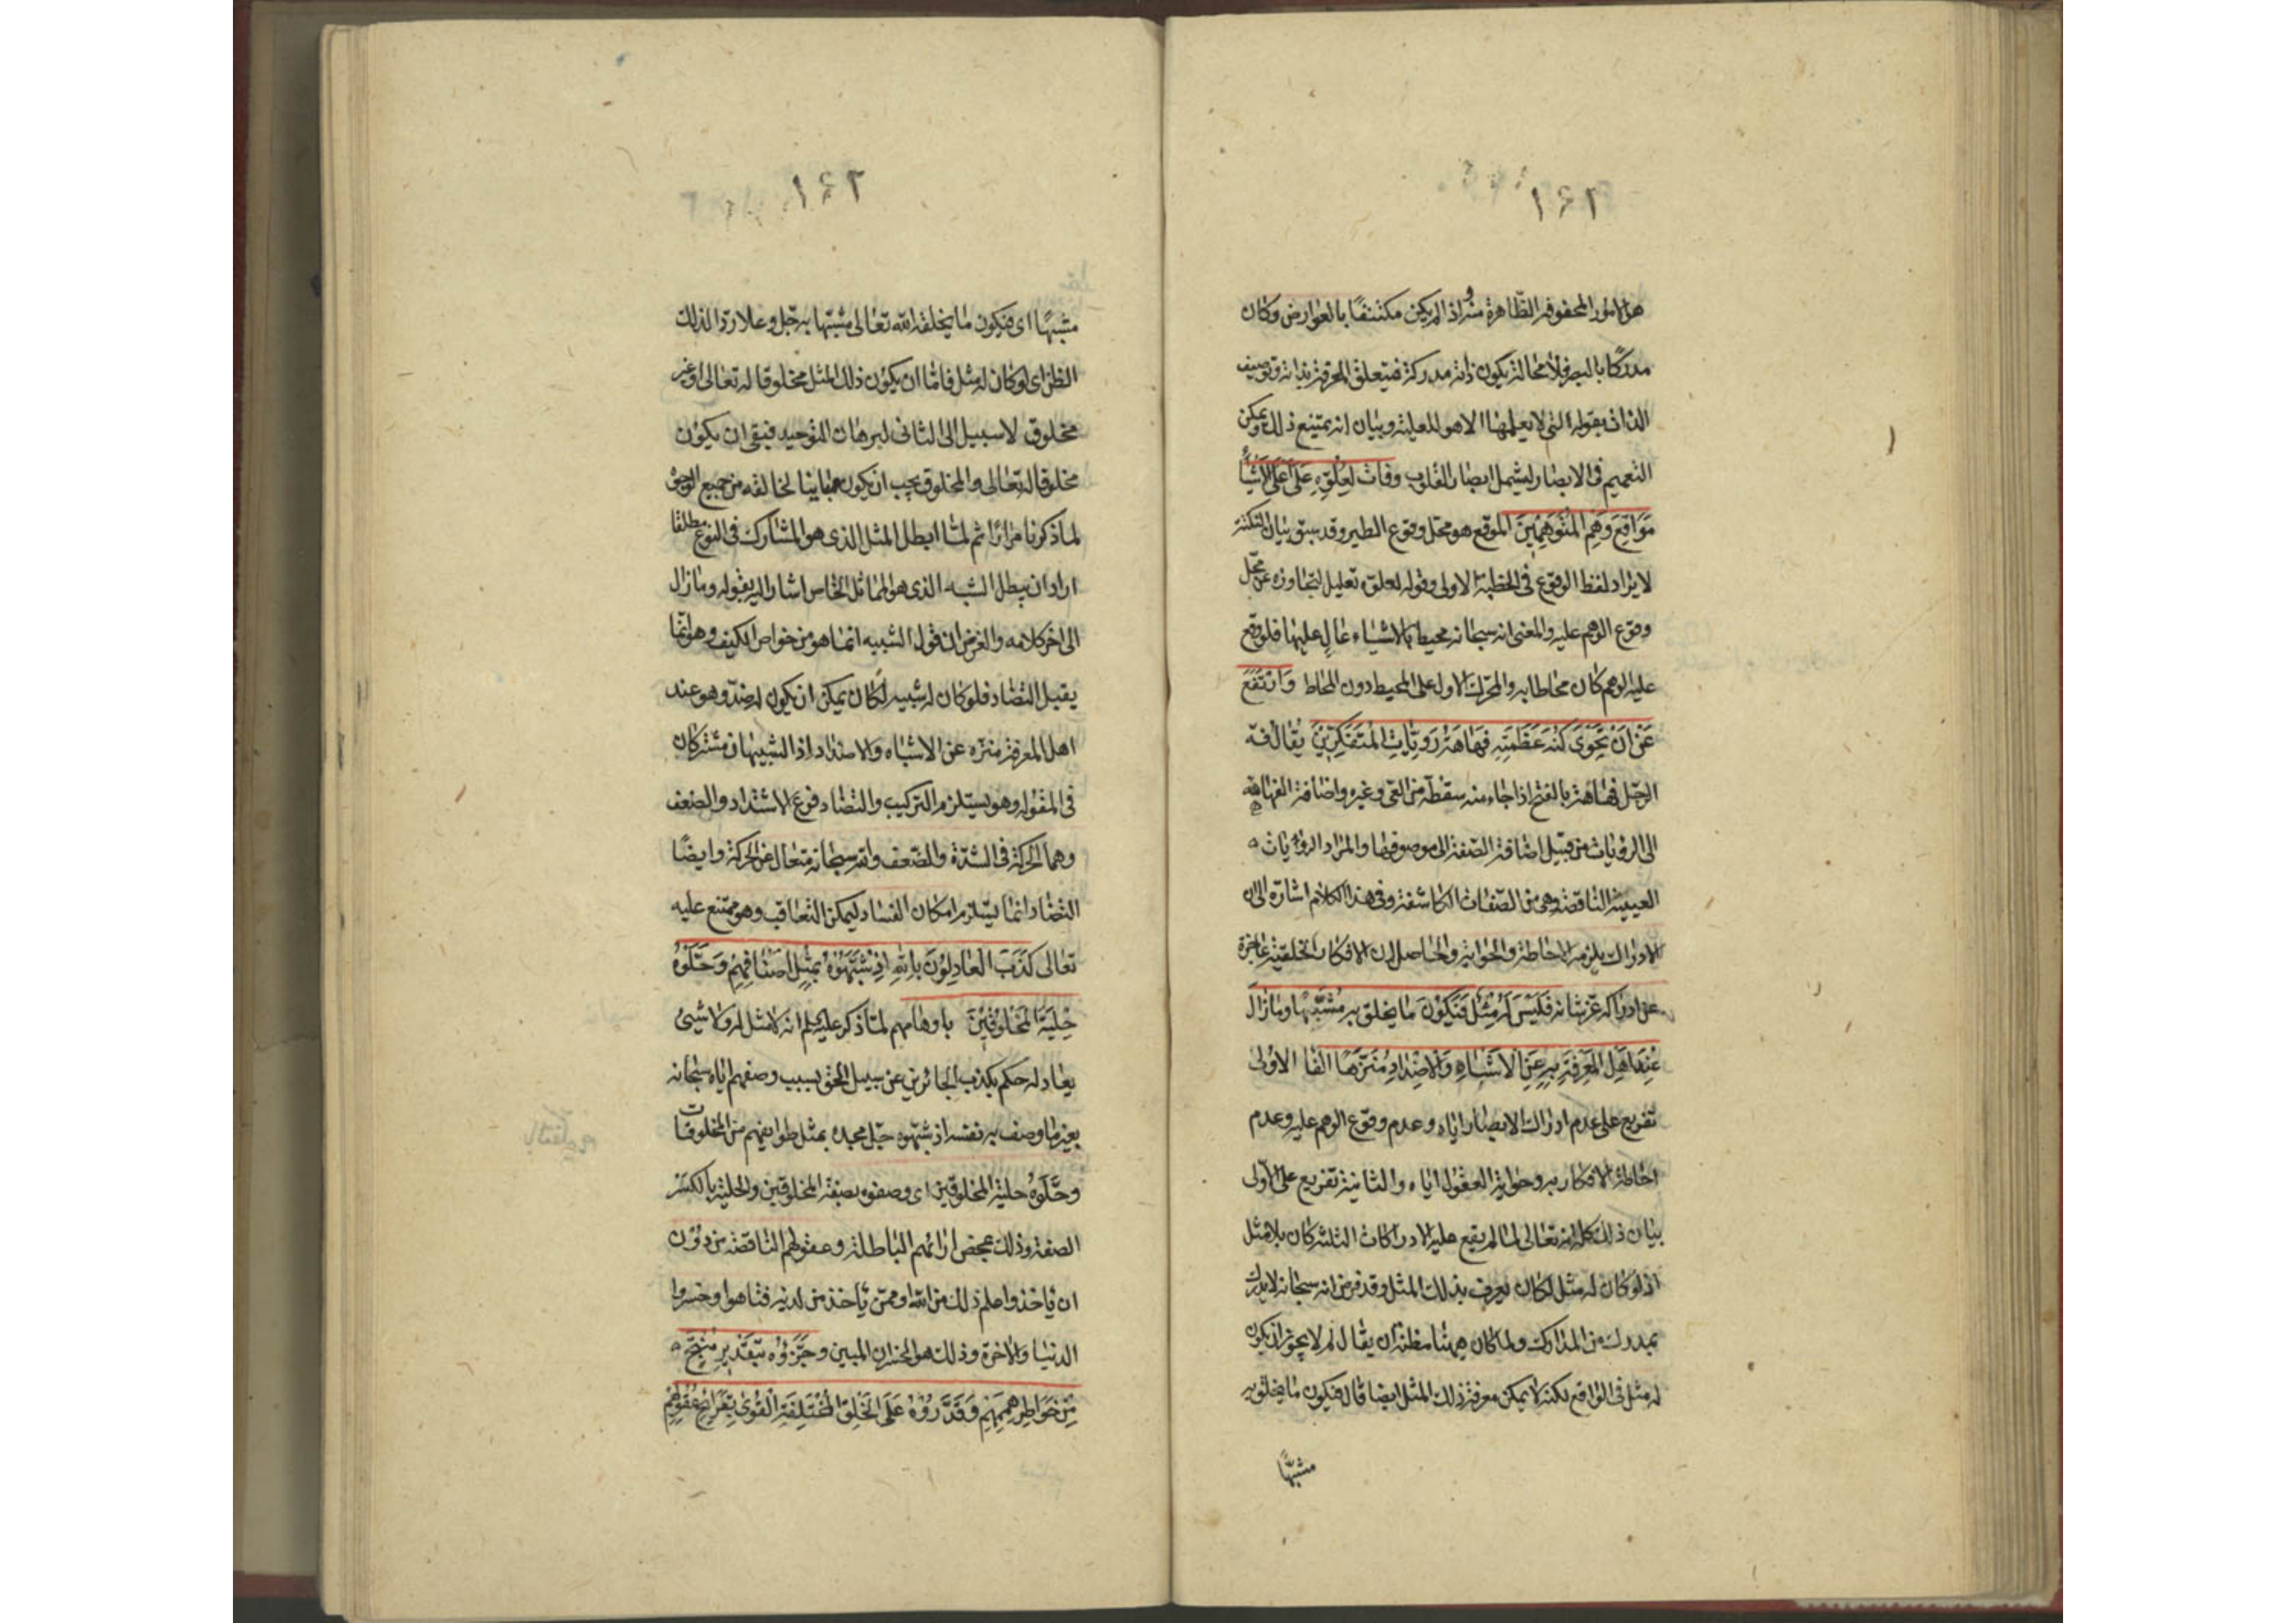 ١٤٢
هو الامور المحفوفة الظاهرة منه واذا لم يكن مكتنفا بالعوارض وكان
مدركا بالبصر فلا محالة يكون ذاته مدركة فيتعلق المعرفة بذاته وتوصيف
الذات بقوله التى لا يعلمها الا هو للعلية وبيان انه يمتنع ذلك ويمكن
التعميم فى الابصار ليشمل ابصار القلوب وفات لعلوه على اعلى الاشياء
مواقع وهم المتوهمين الموقع هو محل وقوع الطير وقد سبق بيان النكتة
لايراد لفظ الوقوع فى الخطبة الاولى وقوله لعلوه تعليل لتجاوزه عن محل
وقوع الوهم عليه والمعنى انه سبحانه محيط بالاشياء عال عليها فلو وقع
عليه الوهم كان محاطا به والمحرك الاول على المحيط دون المحاط وارتفع
عن ان تحوى كنه عظمته فهاهة رويات المتفكرين يقال فه
الرجل فهاهة بالفتح اذا جاء منه سقطة من العى وغيره واضافة الفهاهة
الى الرويات من قبيل اضافة الصفة الى موصوفها والمراد الرويات
العييية الناقصة وهى من الصفات الكاشفة وفى هذا الكلام اشارة الى ان
الادراك يلزمه الاحاطة والحواية والحاصل ان الافكار الخلقية عاجزة
عن ادراكه عز شانه فليس له مثل فيكون ما يخلق به مشبها وما زال
عند اهل المعرفة به عن الاشباه والاضداد منزها الفا الاولى
تفريع على عدم ادراك الابصار اياه وعدم وقوع الوهم عليه وعدم
احاطة الافكار به وحواية العقول اياه والثانية تفريع على الاولى
بيان ذلك كله انه تعالى لما لم يقع عليه الادراكات الثلثة كان بلا مثل
اذ لو كان له مثل لكان يعرف بذلك المثل وقد فرض انه سبحانه لا يدرك
بمدرك من المدارك ولما كان ههنا مظنة ان يقال لم لا يجوز ان يكون
له مثل فى الواقع لكنه لا يمكن معرفة ذلك المثل ايضا قال فيكون ما يخلق به
مشبها
١٤٣
مشبها اى فيكون ما يخلقه الله تعالى مشبها به جل وعلا ردا لذلك
الظن اى لو كان له مثل فاما ان يكون ذلك المثل مخلوقا له تعالى او غير
مخلوق لا سبيل الى الثانى لبرهان التوحيد فبقى ان يكون
مخلوقا له تعالى والمخلوق يجب ان يكون مباينا لخالقه من جميع الوجوه
لما ذكرنا مرارا ثم لما ابطل المثل الذى هو المشارك فى النوع مطلقا
اراد ان يبطل الشبه الذى هو المماثل الخاص اشار اليه بقوله وما زال
الى اخر كلامه والغرض ان قول الشبيه انما هو من خواص الكيف وهو انما
يقبل التضاد فلو كان له شبيه لكان يمكن ان يكون له ضد وهو عند
اهل المعرفة منزه عن الاشباه والاضداد اذ الشبيهان مشتركان
فى المقوله وهو يستلزم التركيب والتضاد فوع الاشتداد والضعف
وهما الحركة فى الشدة والضعف والله سبحانه متعال عن الحركة وايضا
التضاد انما يستلزم امكان الفساد ليمكن التعاقب وهو ممتنع عليه
تعالى كذب العادلون بالله اذ شبهوه بمثل اصنافهم وحلوه
حلية المخلوقين باوهامهم لما ذكر عليه السلم انه لا مثل له ولا شيئ
يعادله حكم بكذب الجائرين عن سبيل الحق بسبب وصفهم اياه سبحانه
بغير ما وصف به نفسه اذ شبهوه جل مجده بمثل طوايفهم من المخلوقات
وحلوه حلية المخلوقين اى وصفوه بصفة المخلوقين والحلية بالكسر
الصفة وذلك بمحض ارائهم الباطلة وعقولهم الناقصة من دون
ان ياخذوا علم ذلك من الله او ممن ياخذ من لدنه فتاهوا وخسروا
الدنيا والاخرة وذلك هو الخسران المبين وجزؤه بتقدير منتج
من خواطر هممهم وقدروه على الخلق المختلفة القوى بقرائح عقولهم